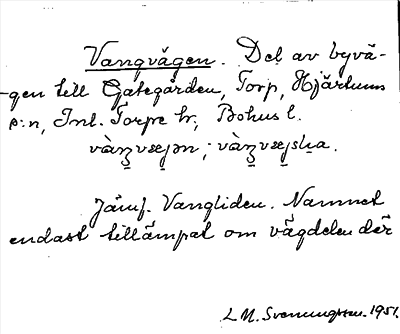 Vangvägen. Del av byvä-
gen till Gategården, Torp, Hjärtums
s:n, Inl. Torpe hr, Bohus l.
Jämf. Vangliden. Namnet
endast tillämpat om vägdelen där
L M. Svenungsson. 1951.